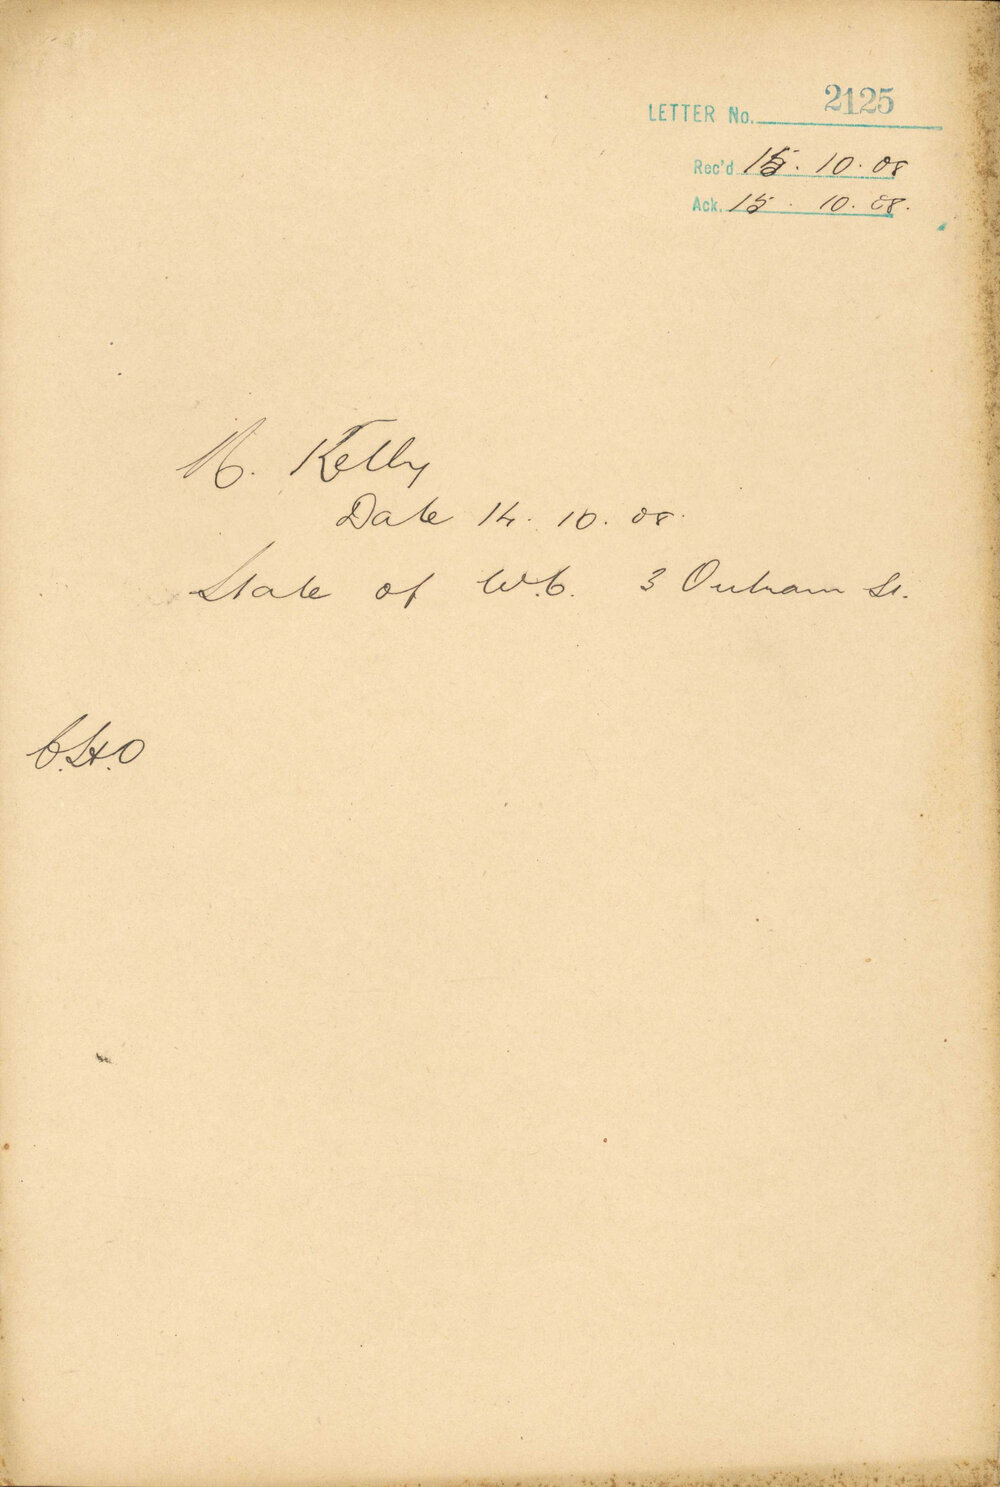 LETTER No. 2125
Rec'd 15. 10. 08
Ack. 15. 10. 08.
Kelly
Date 14. 10. 08.
State of W.C. 3 Outram St.
C.H.O